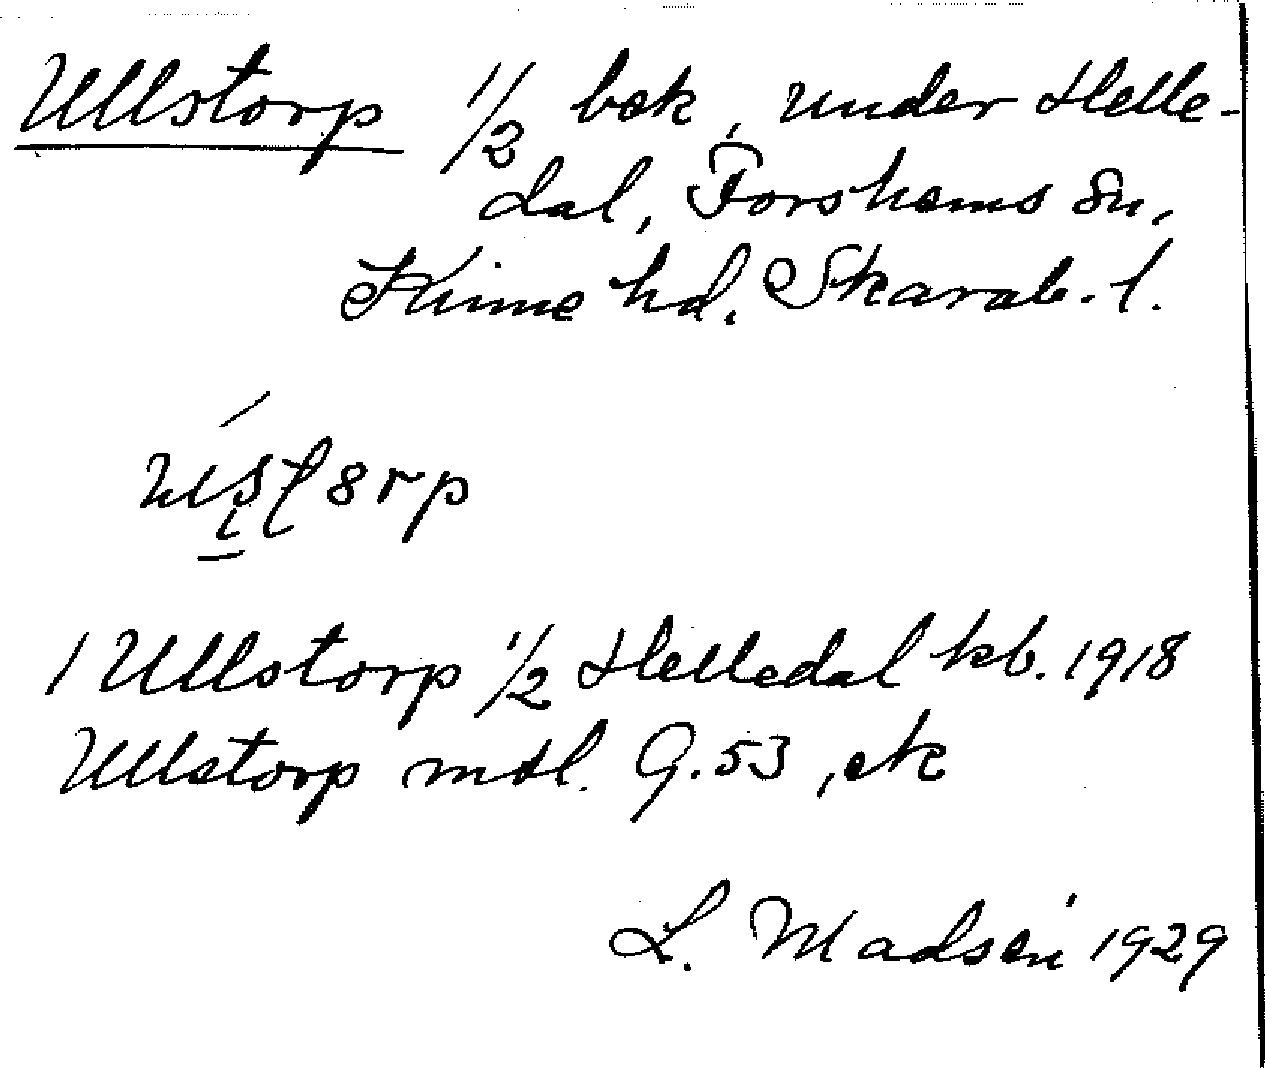 Ullstorp 1/2 bek, under Helle-
dal, Forshems sn,
Kinne hd. Skarab. l.
1 Ullstorp 1/2 Helledal kb. 1918
Ullstorp mtl. G. 53, ek
L. Madsén 1929